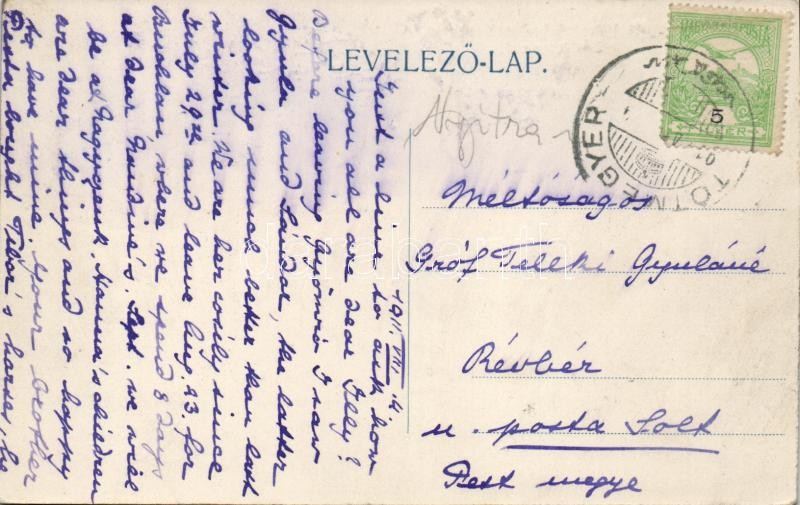 LEVELEZŐ-LAP.
Nyitra
MAGYAR KIR. POSTA
5
TÓTMEGYER
Méltóságos
Gróf Teleki Gyuláné
Révbér
u. posta Solt
Pest megye
1911. VIII 14.
Just a line to ask how
you all are dear Illy?
Before leaving Gyömrő I saw
Gyula and Sándor, the latter
looking much better than last
winter. We are here only since
July 29th and leave Aug 23. for
where we spend 8 days
at dear Nandine's. Sept. we will
be at Nagyugrócz. Hanna's children
are dear things and so happy
to have mine. Your brother
bought Tibor's horse, he